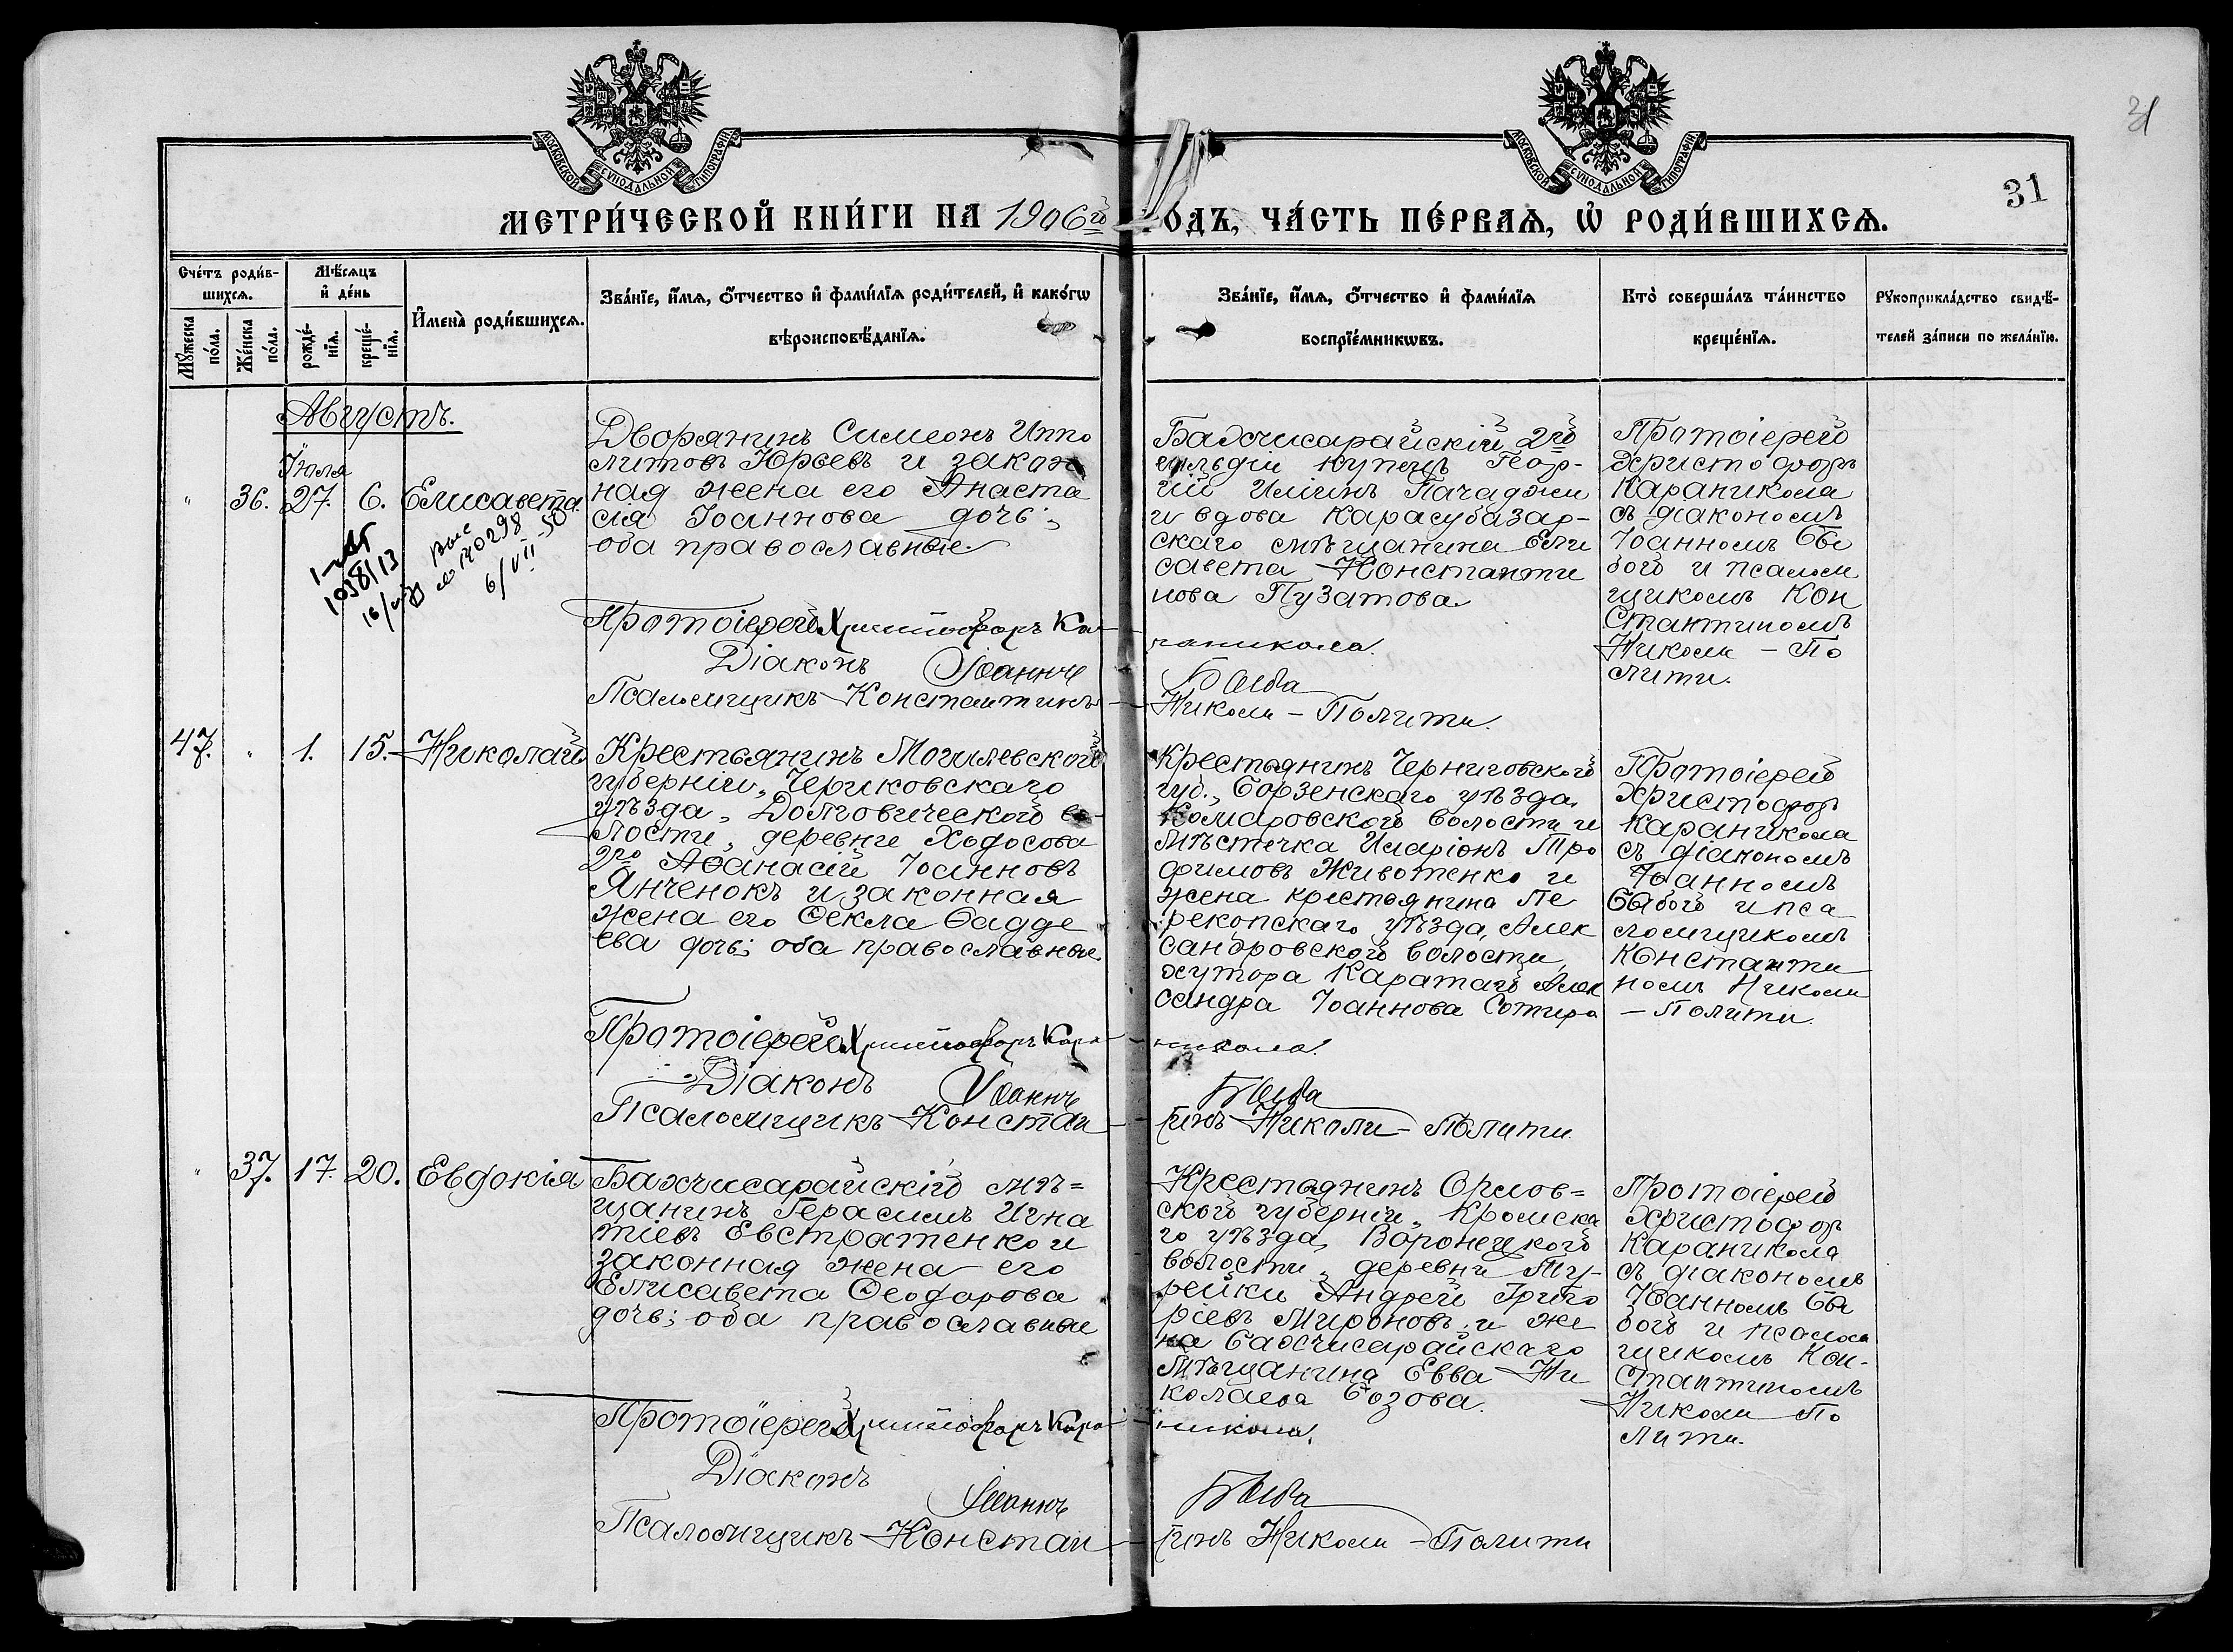 31
31
МОСКОВСКОЙ СѴНОДАЛЬНОЙ ТИПОГРАФІИ
МОСКОВСКОЙ СѴНОДАЛЬНОЙ ТИПОГРАФІИ
МЕТРИ́ЧЕСКОЙ КНИ́ГИ НА 1906го ГОДЪ, ЧА́СТЬ ПЕ́РВАѦ, Ѡ҆ РОДИ́ВШИХСѦ.
Сче́тъ роди́в-
шихсѧ.
Мꙋ́жеска по́ла.
Же́нска по́ла.
Мѣ́сѧцъ
и҆ де́нь
рожде́-
нїѧ.
креще́-
нїѧ.
И҆мена̀ роди́вшихсѧ.
Зва́нїе, и҆́мѧ, ѻ҆́тчество и҆ фами́лїѧ роди́телей, и҆ како́гѡ
вѣроисповѣ́данїѧ.
Зва́нїе, и҆́мѧ, ѻ҆́тчество и҆ фами́лїѧ
воспрїе́мникѡвъ.
Кто̀ соверша́лъ та́инство
креще́нїѧ.
Рꙋкоприкла́дство свидѣ́-
телей за́писи по жела́нїю.
Августъ.
Іюля
" 36. 27. 6. Елисавета
1038113
6/VII-50
Дворянинъ Симеонъ Иппо
литовъ Юрьевъ и закон
ная жена его Анаста
сія Іоаннова дочь;
оба православные.
Бахчисарайскій 2й
гильдіи купецъ Геор-
гій Иліинъ Пачаджи
и вдова Карасубазар-
скаго мѣщанина Ели
савета Константи
нова Пузатова.
Протоіерей
Христофоръ
Караникола
съ діакономъ
Іоанномъ Бѣ
бой и псаломи
щикомъ Кон
стантиномъ
Николи - По
лити.
Протоіерей Христофоръ Ка-
раникола.
Діаконъ Іоаннъ
Псаломщикъ Константинъ -
Николи - Полити.
47. " 1. 15. Николай
Крестьянинъ Могилевской
губерніи, Чериковскаго
уѣзда, Долговической во-
лости, деревни Ходосова
2го Аѳанасій Іоанновъ
Янченокъ и законная
жена его Ѳекла Ѳадде
ева дочь; оба православные.
Крестьянинъ Черниговской
губ., Борзенскаго уѣзда,
Комаровской волости и
мѣстечка Иларіонъ Тро
фимовъ Животенко и
жена крестьянина Пе
рекопскаго уѣзда, Алек
сандровской волости,
хутора Каратай Алек
сандра Іоаннова Сотира
Протоіерей
Христофоръ
Караникола
съ діакономъ
Іоанномъ
Бабой и пса
ломщикомъ
Константи
номъ Николи
- Полити.
Протоіерей Христофоръ Кара-
никола.
Діаконъ Іоаннъ
Псаломщикъ Констан-
тинъ Николи - Полити.
" 37. 17. 20. Евдокія
Бахчисарайскій мѣ=
щанинъ Герасимъ Игна
тіевъ Евстратенко и
законная жена его
Елисавета Ѳеодорова
дочь; оба православные
Крестьянинъ Орлов=
ской губерніи, Кромска
го уѣзда, Воронецкой
волости, деревни Ту-
рейки Андрей Григо
ріевъ Мироновъ и же
на бахчисарайскаго
мѣщанина Евва Ни
колаева Бозова.
Протоіерей
Христофоръ
Караникола
съ діакономъ
Іоанномъ Бѣ
бой и псаломъ
щикомъ Кон-
стантиномъ
Николи По
лити.
Протоіерей Христофоръ Кара-
никола.
Діаконъ Іоаннъ
Псаломщикъ Констан-
тинъ Николи - Полити